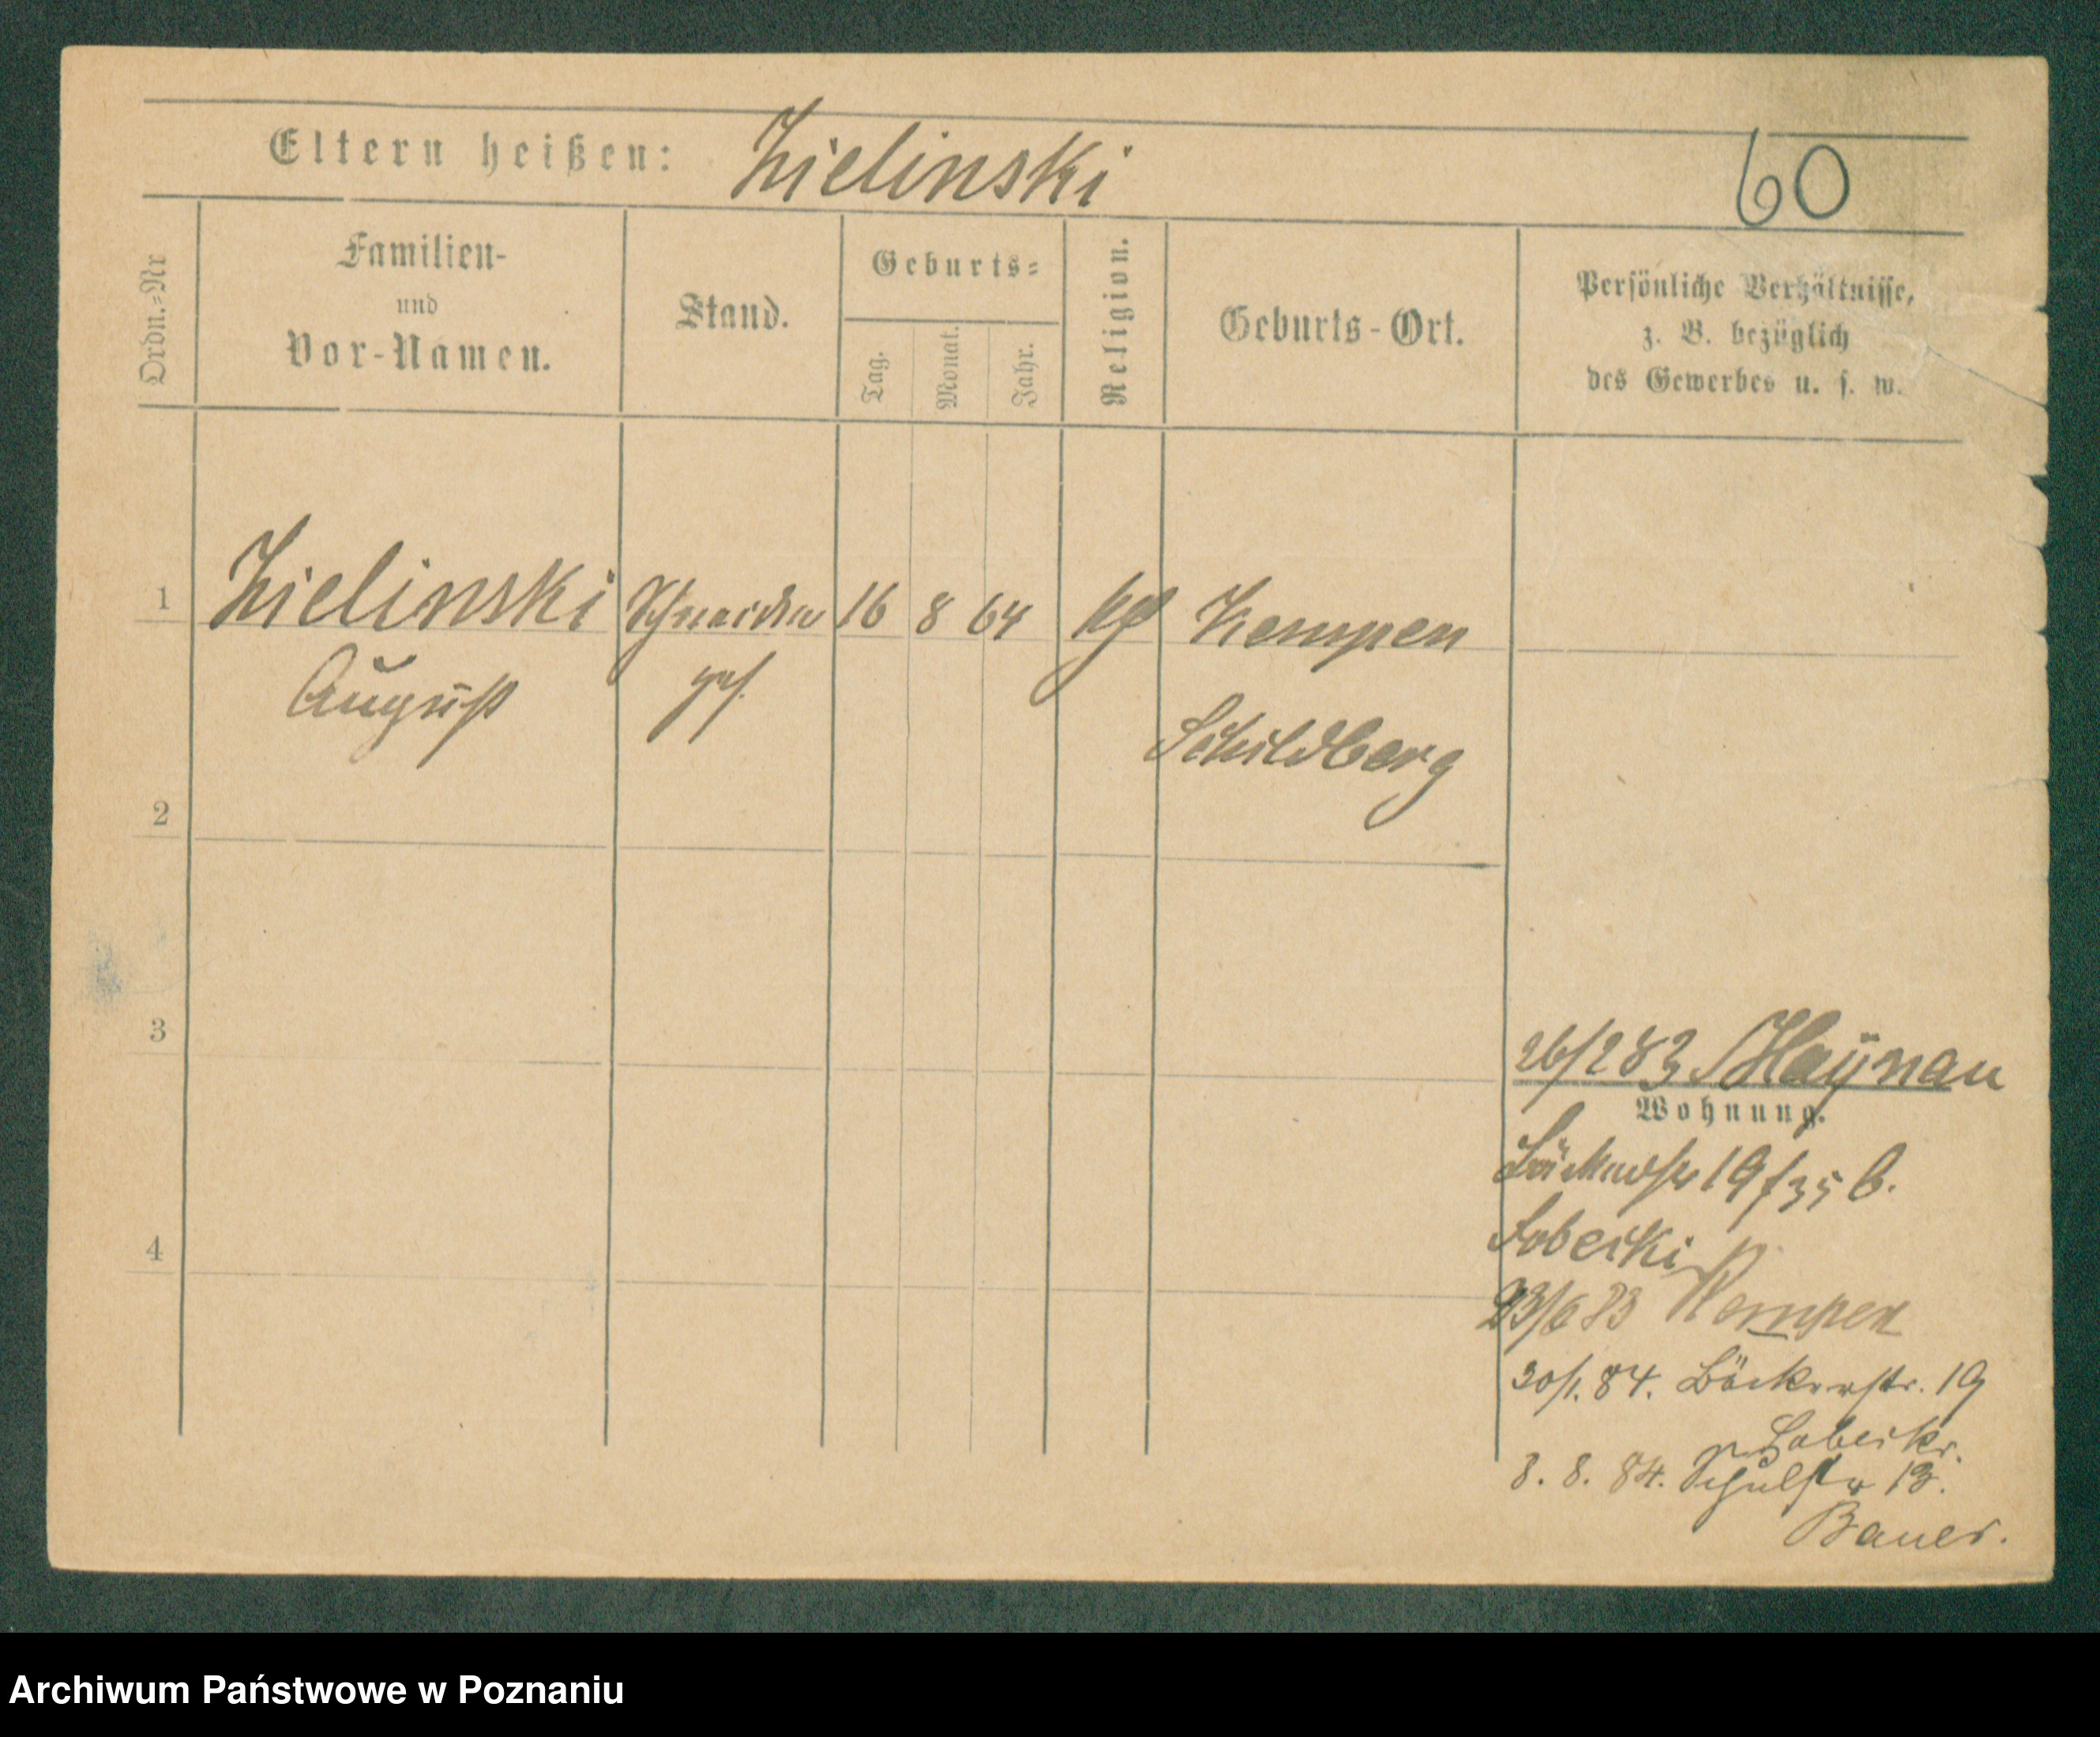 Eltern heißen: Zielinski 60
Ordn.=Nr
Familien-
und
Vor-Namen.
Stand.
Geburts=
Tag.
Monat.
Jahr.
Religion.
Geburts-Ort.
Persönliche Verhältnisse,
z. B. bezüglich
des Gewerbes u. s. w.
1 Zielinski Schneider 16 8 64 Kath Kempen
August ges.
Schildberg
2
3
26/2 83 Haynau
Wohnung.
19
4
23/6 83 Kempen
30/1. 84. Bäckerstr. 19
8. 84. Schulstr 13.
Bauer.
Archiwum Państwowe w Poznaniu